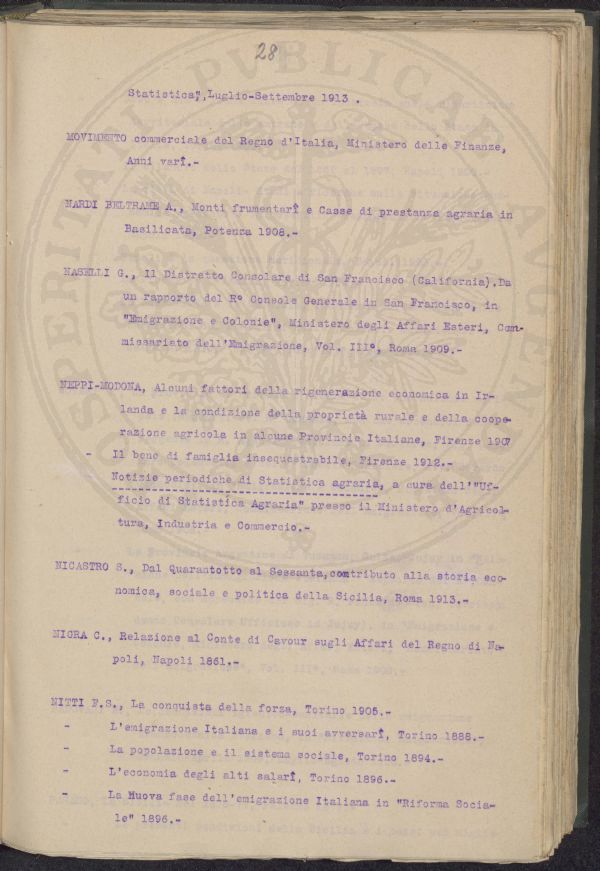 28
Statistica",Luglio-Settembre 1913 .
MOVIMENTO commerciale del Regno d'Italia, Ministero delle Finanze,
Anni varî.-
NARDI BELTRAME A., Monti frumentarî e Casse di prestanza agraria in
Basilicata, Potenza 1908.-
NASELLI G., Il Distretto Consolare di San Francisco (California).Da
un rapporto del R° Console Generale in San Francisco, in
"Emigrazione e Colonie", Ministero degli Affari Esteri, Com-
missariato dell'Emigrazione, Vol. III°, Roma 1909.-
NEPPI-MODONA, Alcuni fattori della rigenerazione economica in Ir-
landa e la condizione della proprietà rurale e della coope-
razione agricola in alcune Provincie Italiane, Firenze 1907
- Il bene di famiglia insequestrabile, Firenze 1912.-
- Notizie periodiche di Statistica agraria, a cura dell'"Uf-
ficio di Statistica Agraria" presso il Ministero d'Agricol-
tura, Industria e Commercio.-
NICASTRO S., Dal Quarantotto al Sessanta,contributo alla storia eco-
nomica, sociale e politica della Sicilia, Roma 1913.-
NIGRA C., Relazione al Conte di Cavour sugli Affari del Regno di Na-
poli, Napoli 1861.-
NITTI F.S., La conquista della forza, Torino 1905.-
- L'emigrazione Italiana e i suoi avversarî, Torino 1888.-
- La popolazione e il sistema sociale, Torino 1894.-
- L'economia degli alti salarî, Torino 1896.-
- La Nuova fase dell'emigrazione Italiana in "Riforma Socia-
le" 1896.-